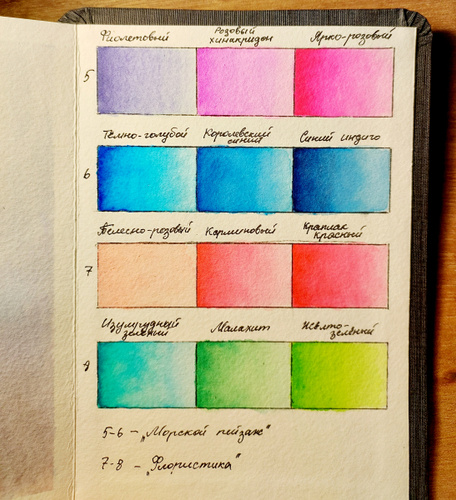 Фиолетовый
Розовый
хинакридон
Ярко-розовый
5
Тёмно-голубой
Королевский
синий
Синий индиго
6
Телесно-розовый
Карминовый
Краплак
красный
7
Изумрудный
зелёный
Малахит
Жёлто-
зелёный
8
5-6 – „Морской пейзаж"
7-8 – „Флористика"